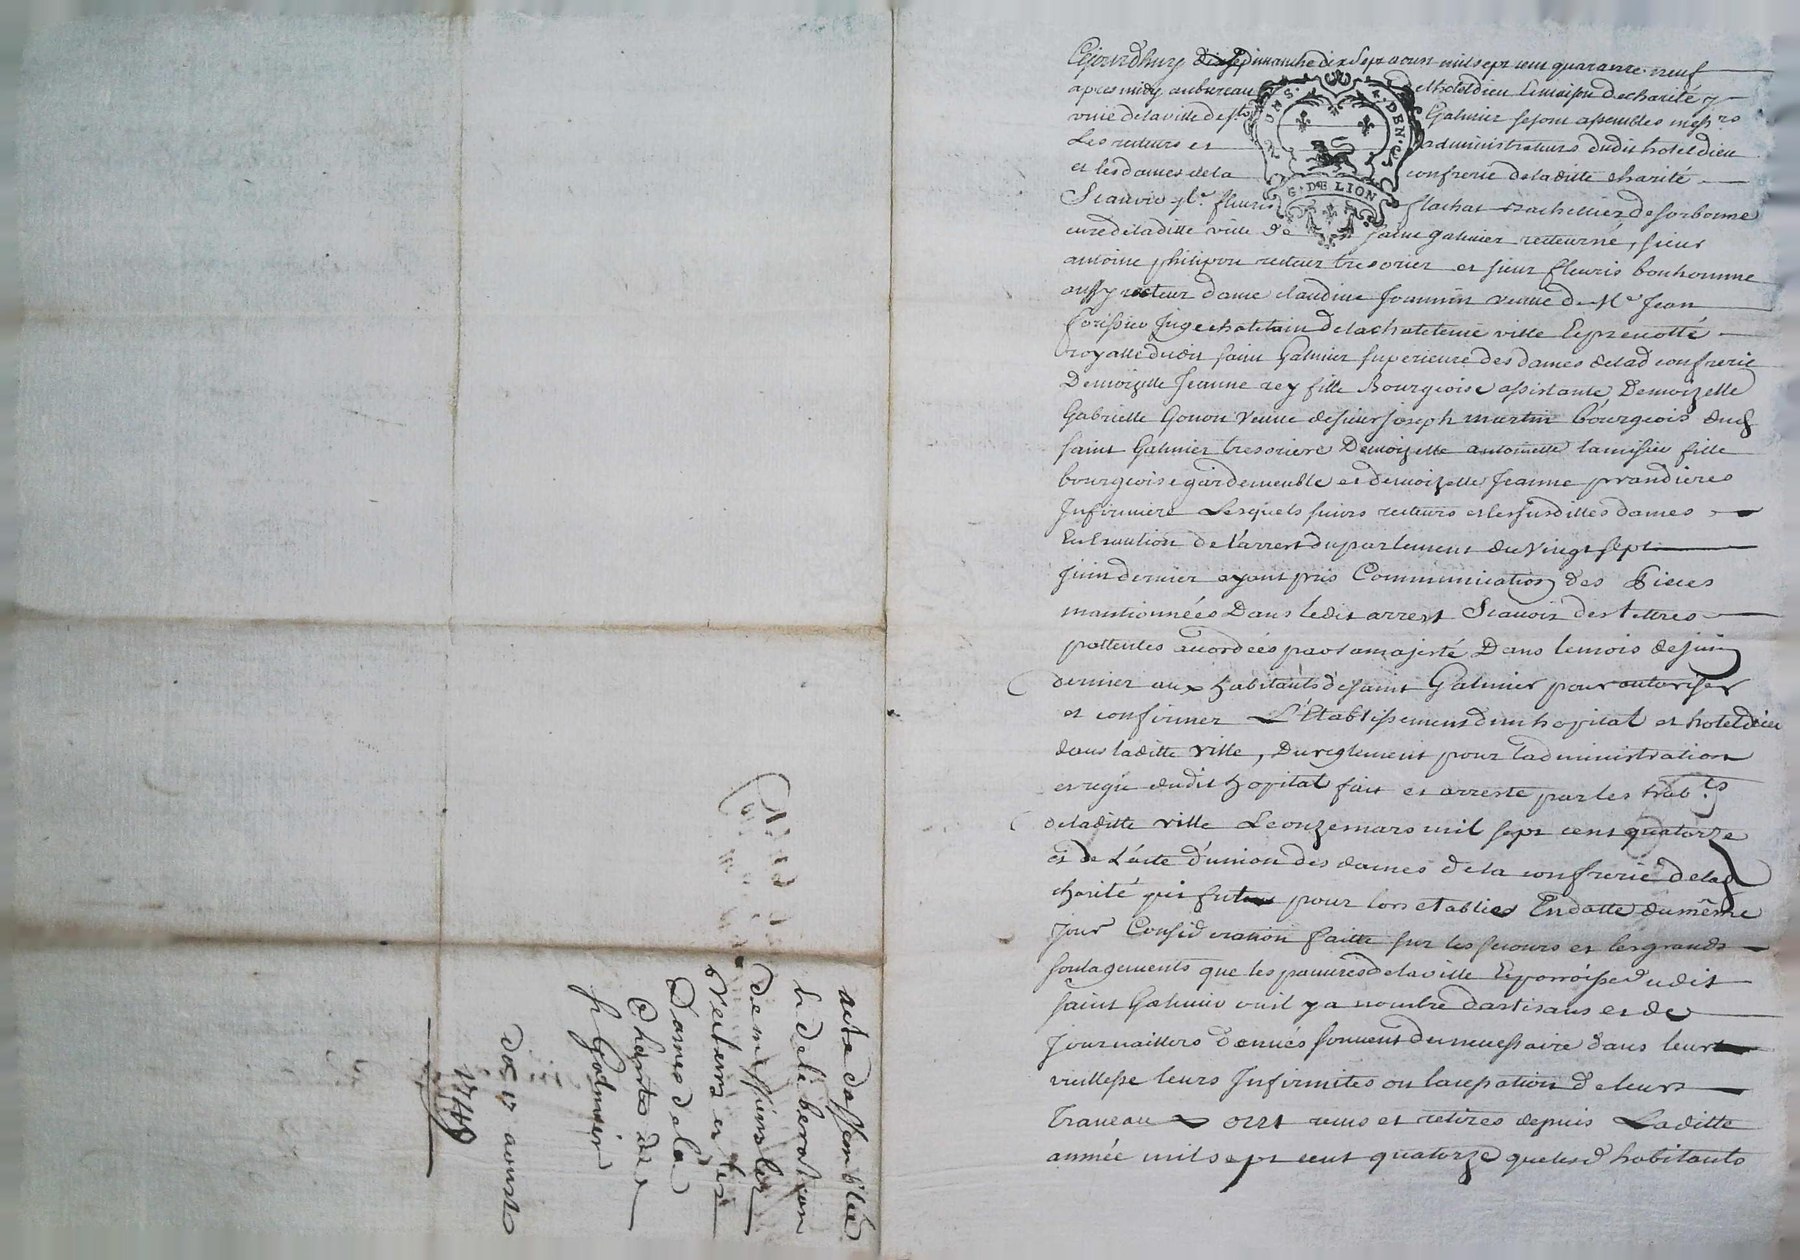 Cejourdhuy dimanche dix sept aoust mil sept cent quarante neuf
apres midy au bureau de lhotel dieu & maison de charité
de la ville de st Galmier se sont assembles messrs
Les recteurs et administrateurs dudit hotel dieu
et les dames de la confrerie de la ditte charité
Scauoir flachat Bachellier de sorbonne
curé de la ditte ville de saint galmier recteur né, sieur
antoine philipon recteur tresorier et sieur fleuris bonhomme
aussy recteur dame claudine Joannin veuve de Me Jean
Juge chatelain de la chatelenie ville & prevotté
royalle dudit saint Galmier superieure des dames de lad confrerie
Demoizelle Jeanne rey fille Bourgeoise assistante, Demoizelle
Gabrielle Gonon Veuve de sieur Joseph martin bourgeois dud
saint Galmier tresoriere Demoizelle antoinette fille
bourgeoise gardemeuble et demoizelle Jeanne prandieres
Infirmiere Lesquels sieurs recteurs et les susdittes dames
En Execution de l'arrest du parlement du Vingt sept
Juin dernier ayant pris Communication des Pieces
mantionnées Dans ledit arrest Scauoir des lettres
pattentes accordées par sa majesté Dans le mois de juin
dernier aux habitants de saint Galmier pour autoriser
et confirmer L'Etablissement d'un hopital et hotel dieu
dans laditte ville, Du reglement pour l'administration
et regie dudit hopital fait et arresté par les habts
de laditte ville Le onze mars mil sept cent quatorze
et de L'acte d'union des dames de la confrerie de lad
charité qui furent pour lors etablies En datte du même
jour Consideration faitte sur les secours et les grands
soulagements que les pauvres de la ville & parroisse dudit
saint Galmier ou il y a nombre dartisans et de
Journailliers denués souvent du necessaire dans leur
vieillesse leurs Infirmités ou la cessation de leurs
Traveau ont reçus et retirés depuis Laditte
année mil sept cent quatorze que lesd habitants
acte dassemblée
& deliberation
de messieurs les
Recteurs et des
Dames de la
Charite de
st Galmier
Du 17 aoust
1749
UNS. 4. DEN.
G. DE LION